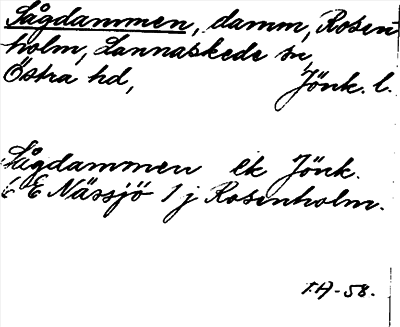 Sågdammen, damm, Rosen-
holm, Lannaskede sn,
Östra hd, Jönk. l.
Sågdammen ek Jönk.
6 E Nässjö 1 j Rosenholm.
T.H-58.